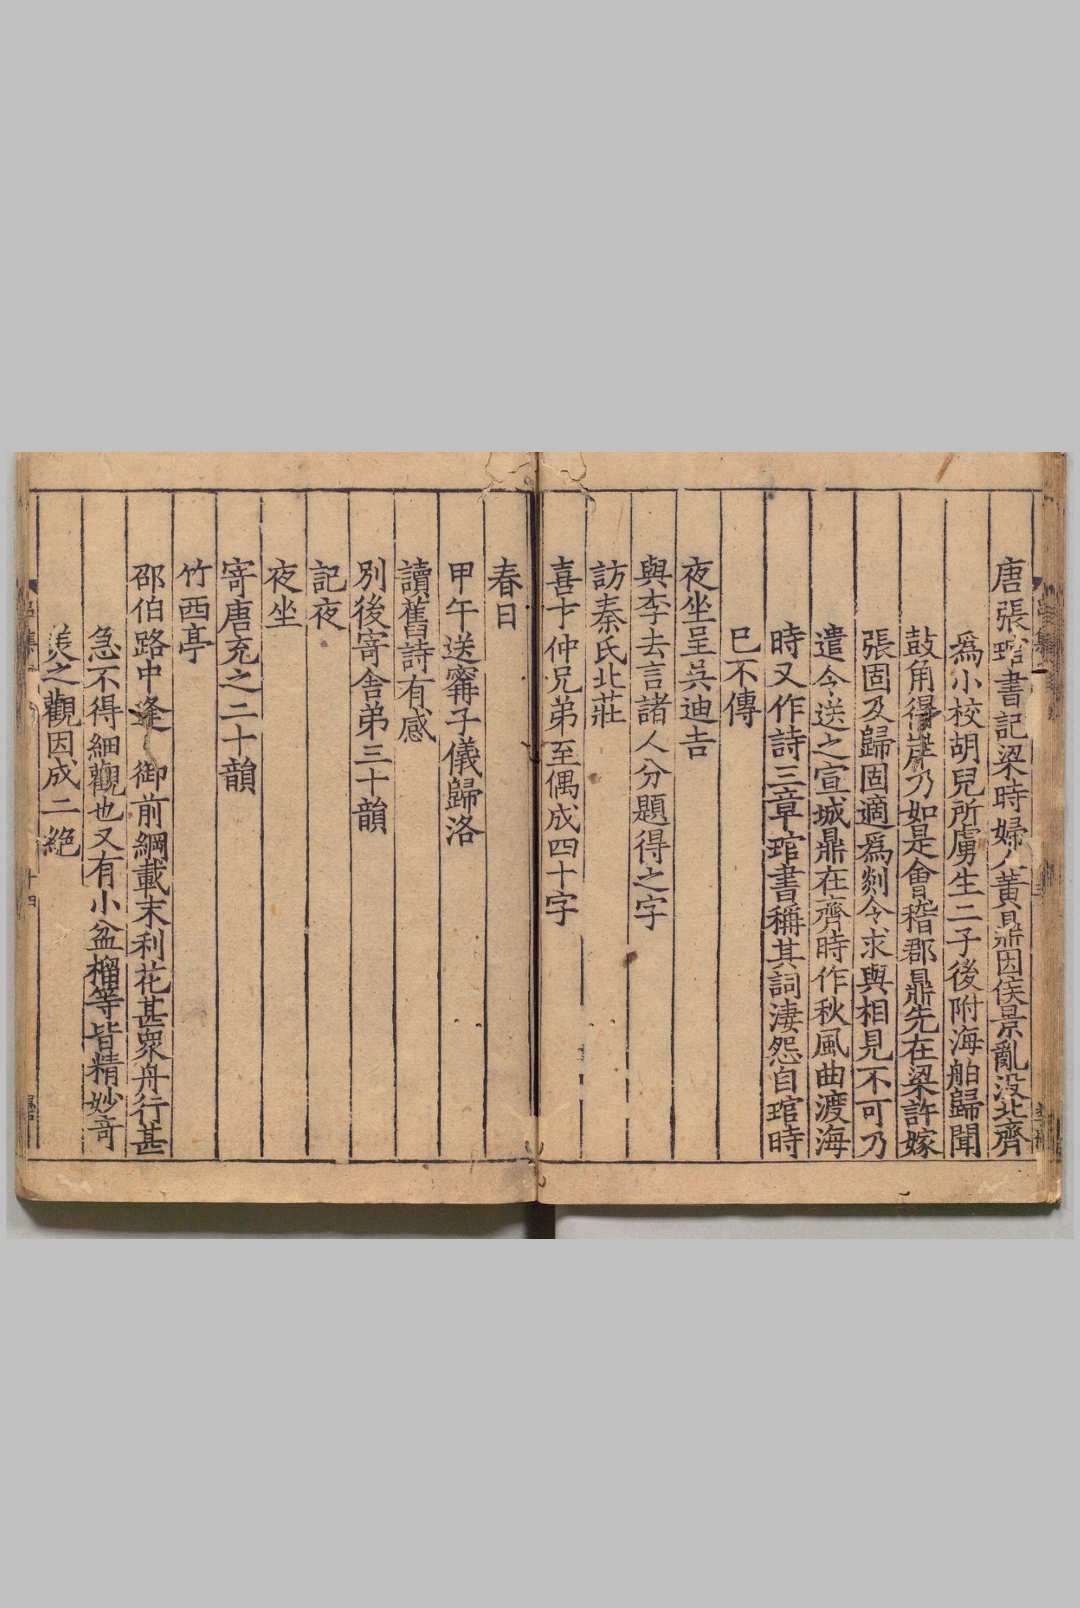 唐張琯書記梁時婦人黃鼎因侯景亂没北齊
爲小校胡兒所虜生二子後附海舶歸聞
鼓角得乃如是會稽郡鼎先在梁許嫁
張固及歸固適爲剡令求與相見不可乃
遣令送之宣城鼎在齊時作秋風曲渡海
時又作詩三章琯書稱其詞淒怨自琯時
巳不傳
夜坐呈吳迪吉
與李去言諸人分題得之字
訪秦氏北莊
喜于仲兄弟至偶成四十字
春日
甲午送甯子儀歸洛
讀舊詩有感
別後寄舍弟三十韻
記夜
夜坐
寄唐充之二十韻
竹西亭
邵伯路中逢 御前綱載末利花甚衆舟行甚
急不得細觀也又有小盆榴等皆精妙奇
之觀因成二絶
十四